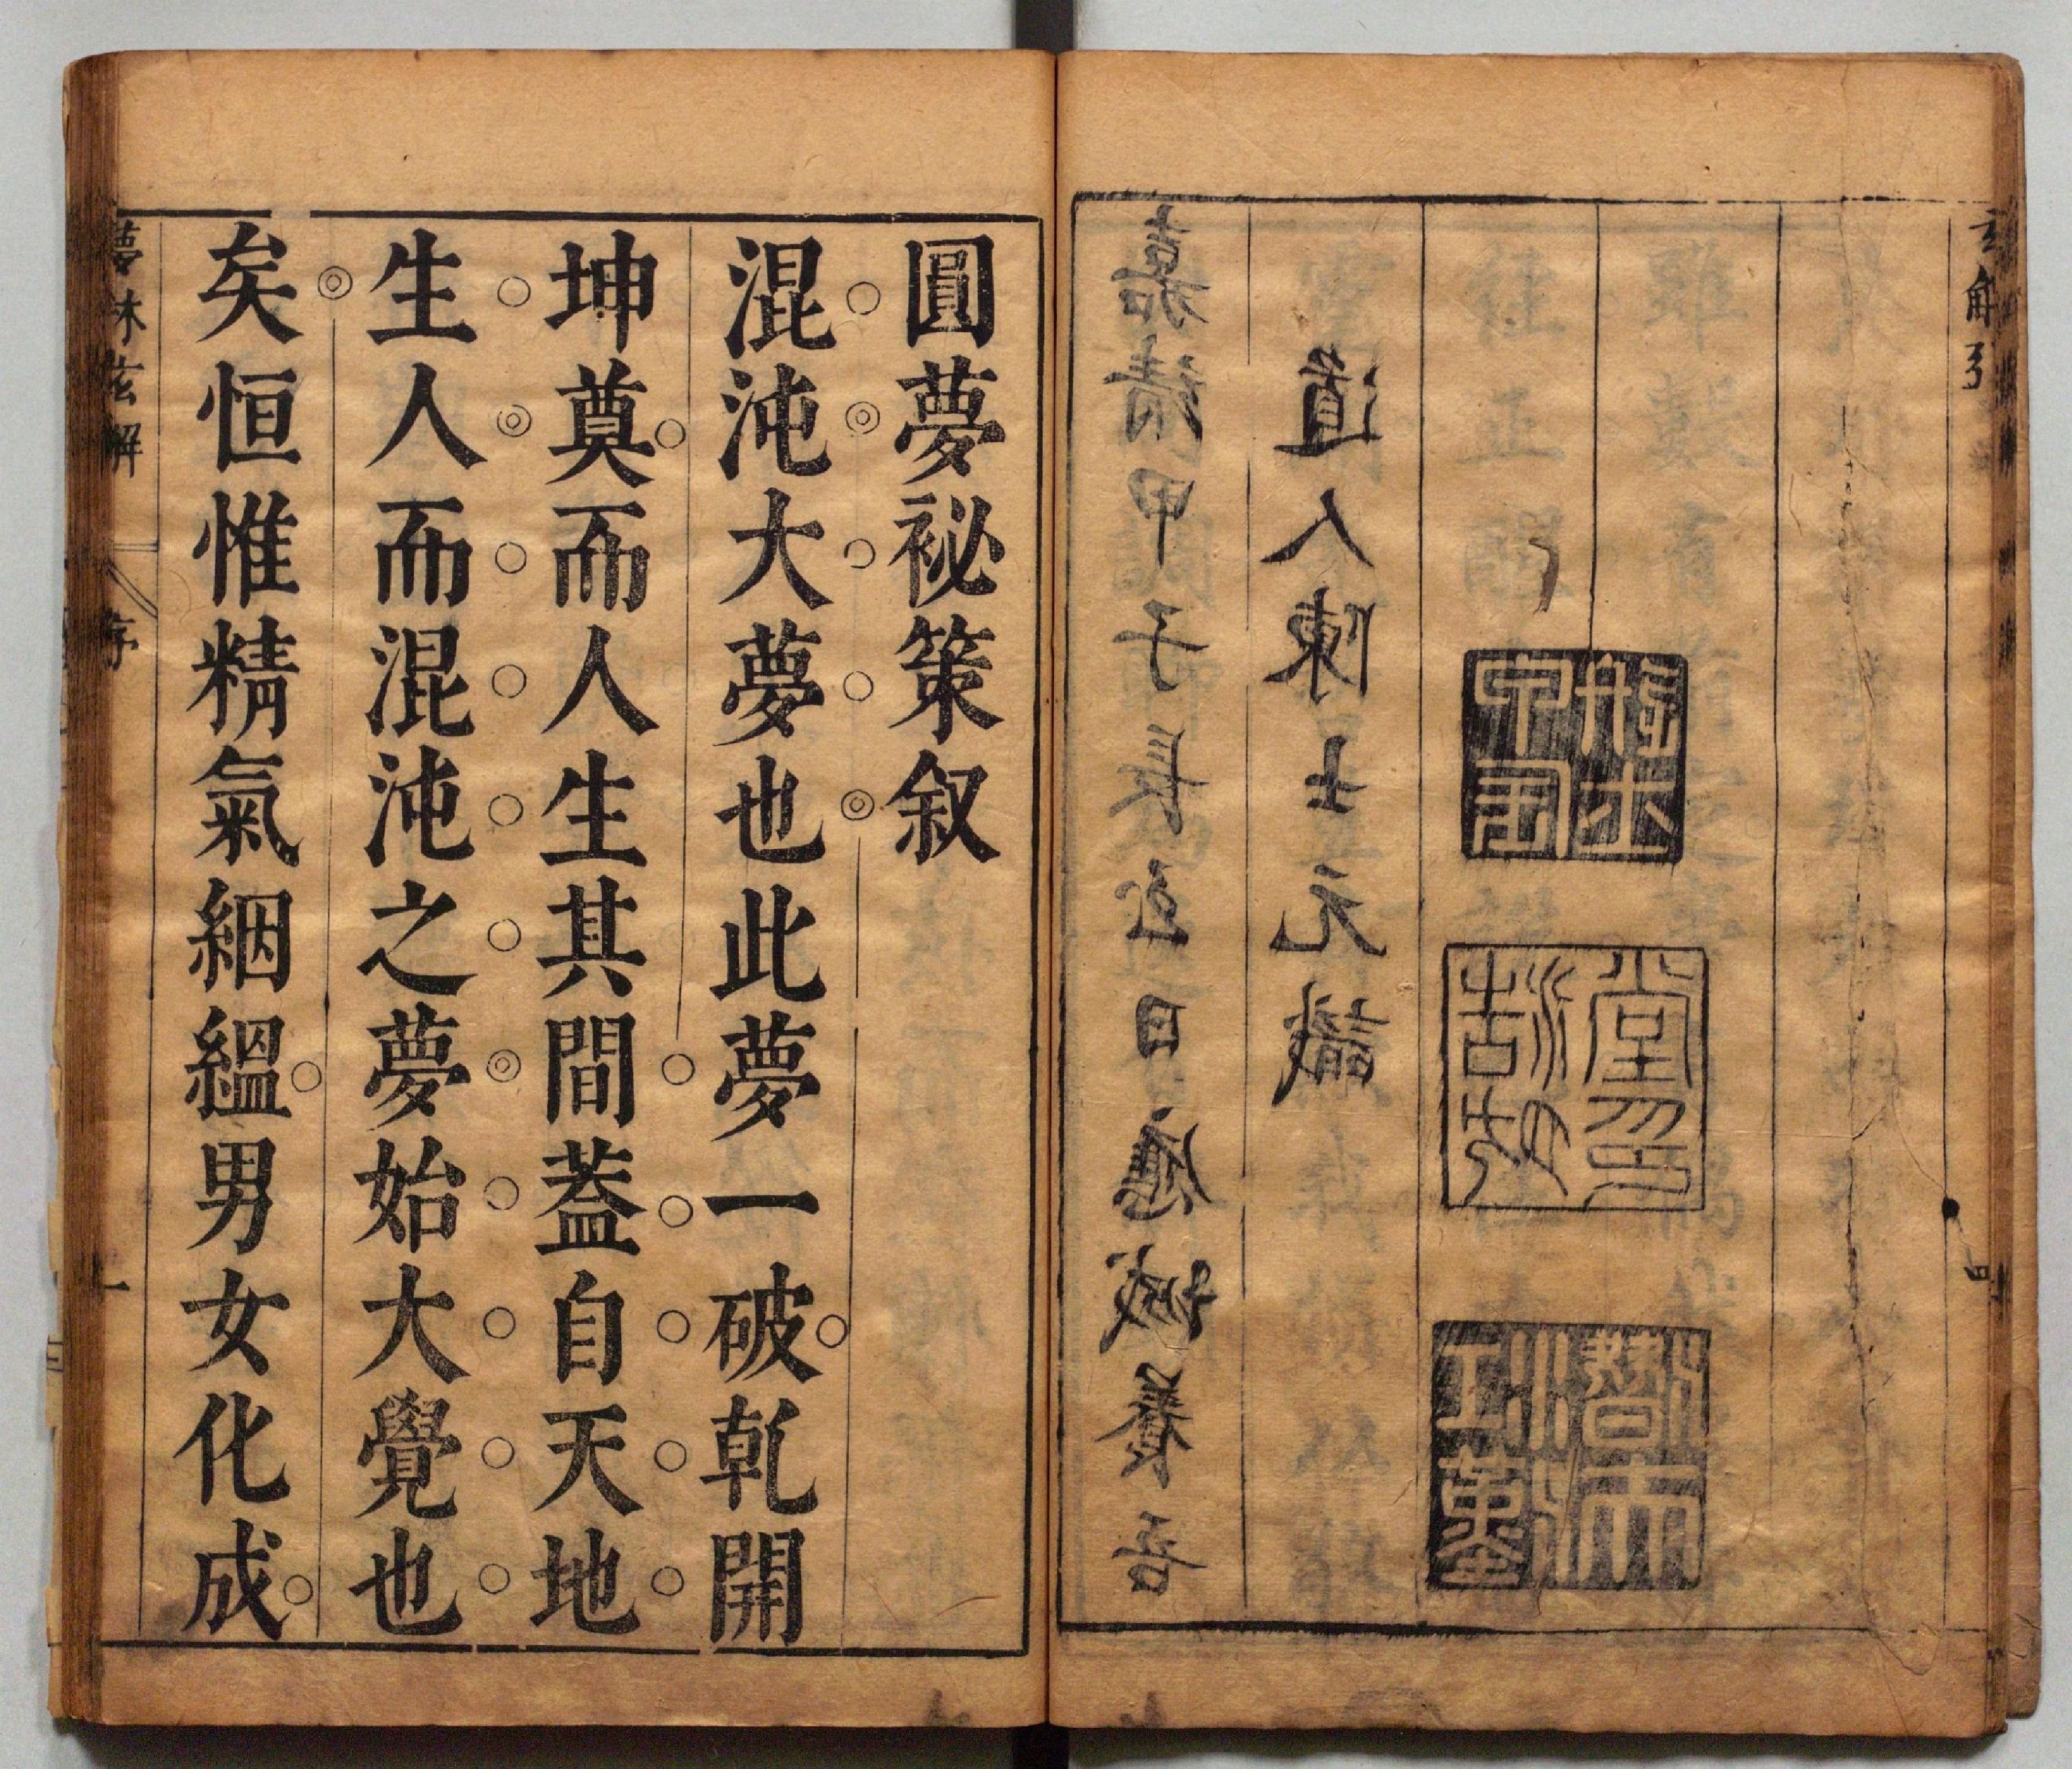 玄解引
嘉靖甲子長至日應城養吾
道人陳士元識
圓夢祕策叙
混沌大夢也此夢一破乾開
坤奠而人生其間蓋自天地
生人而混沌之夢始大覺也
矣恒惟精氣絪縕男女化成
夢林玄解 序 一